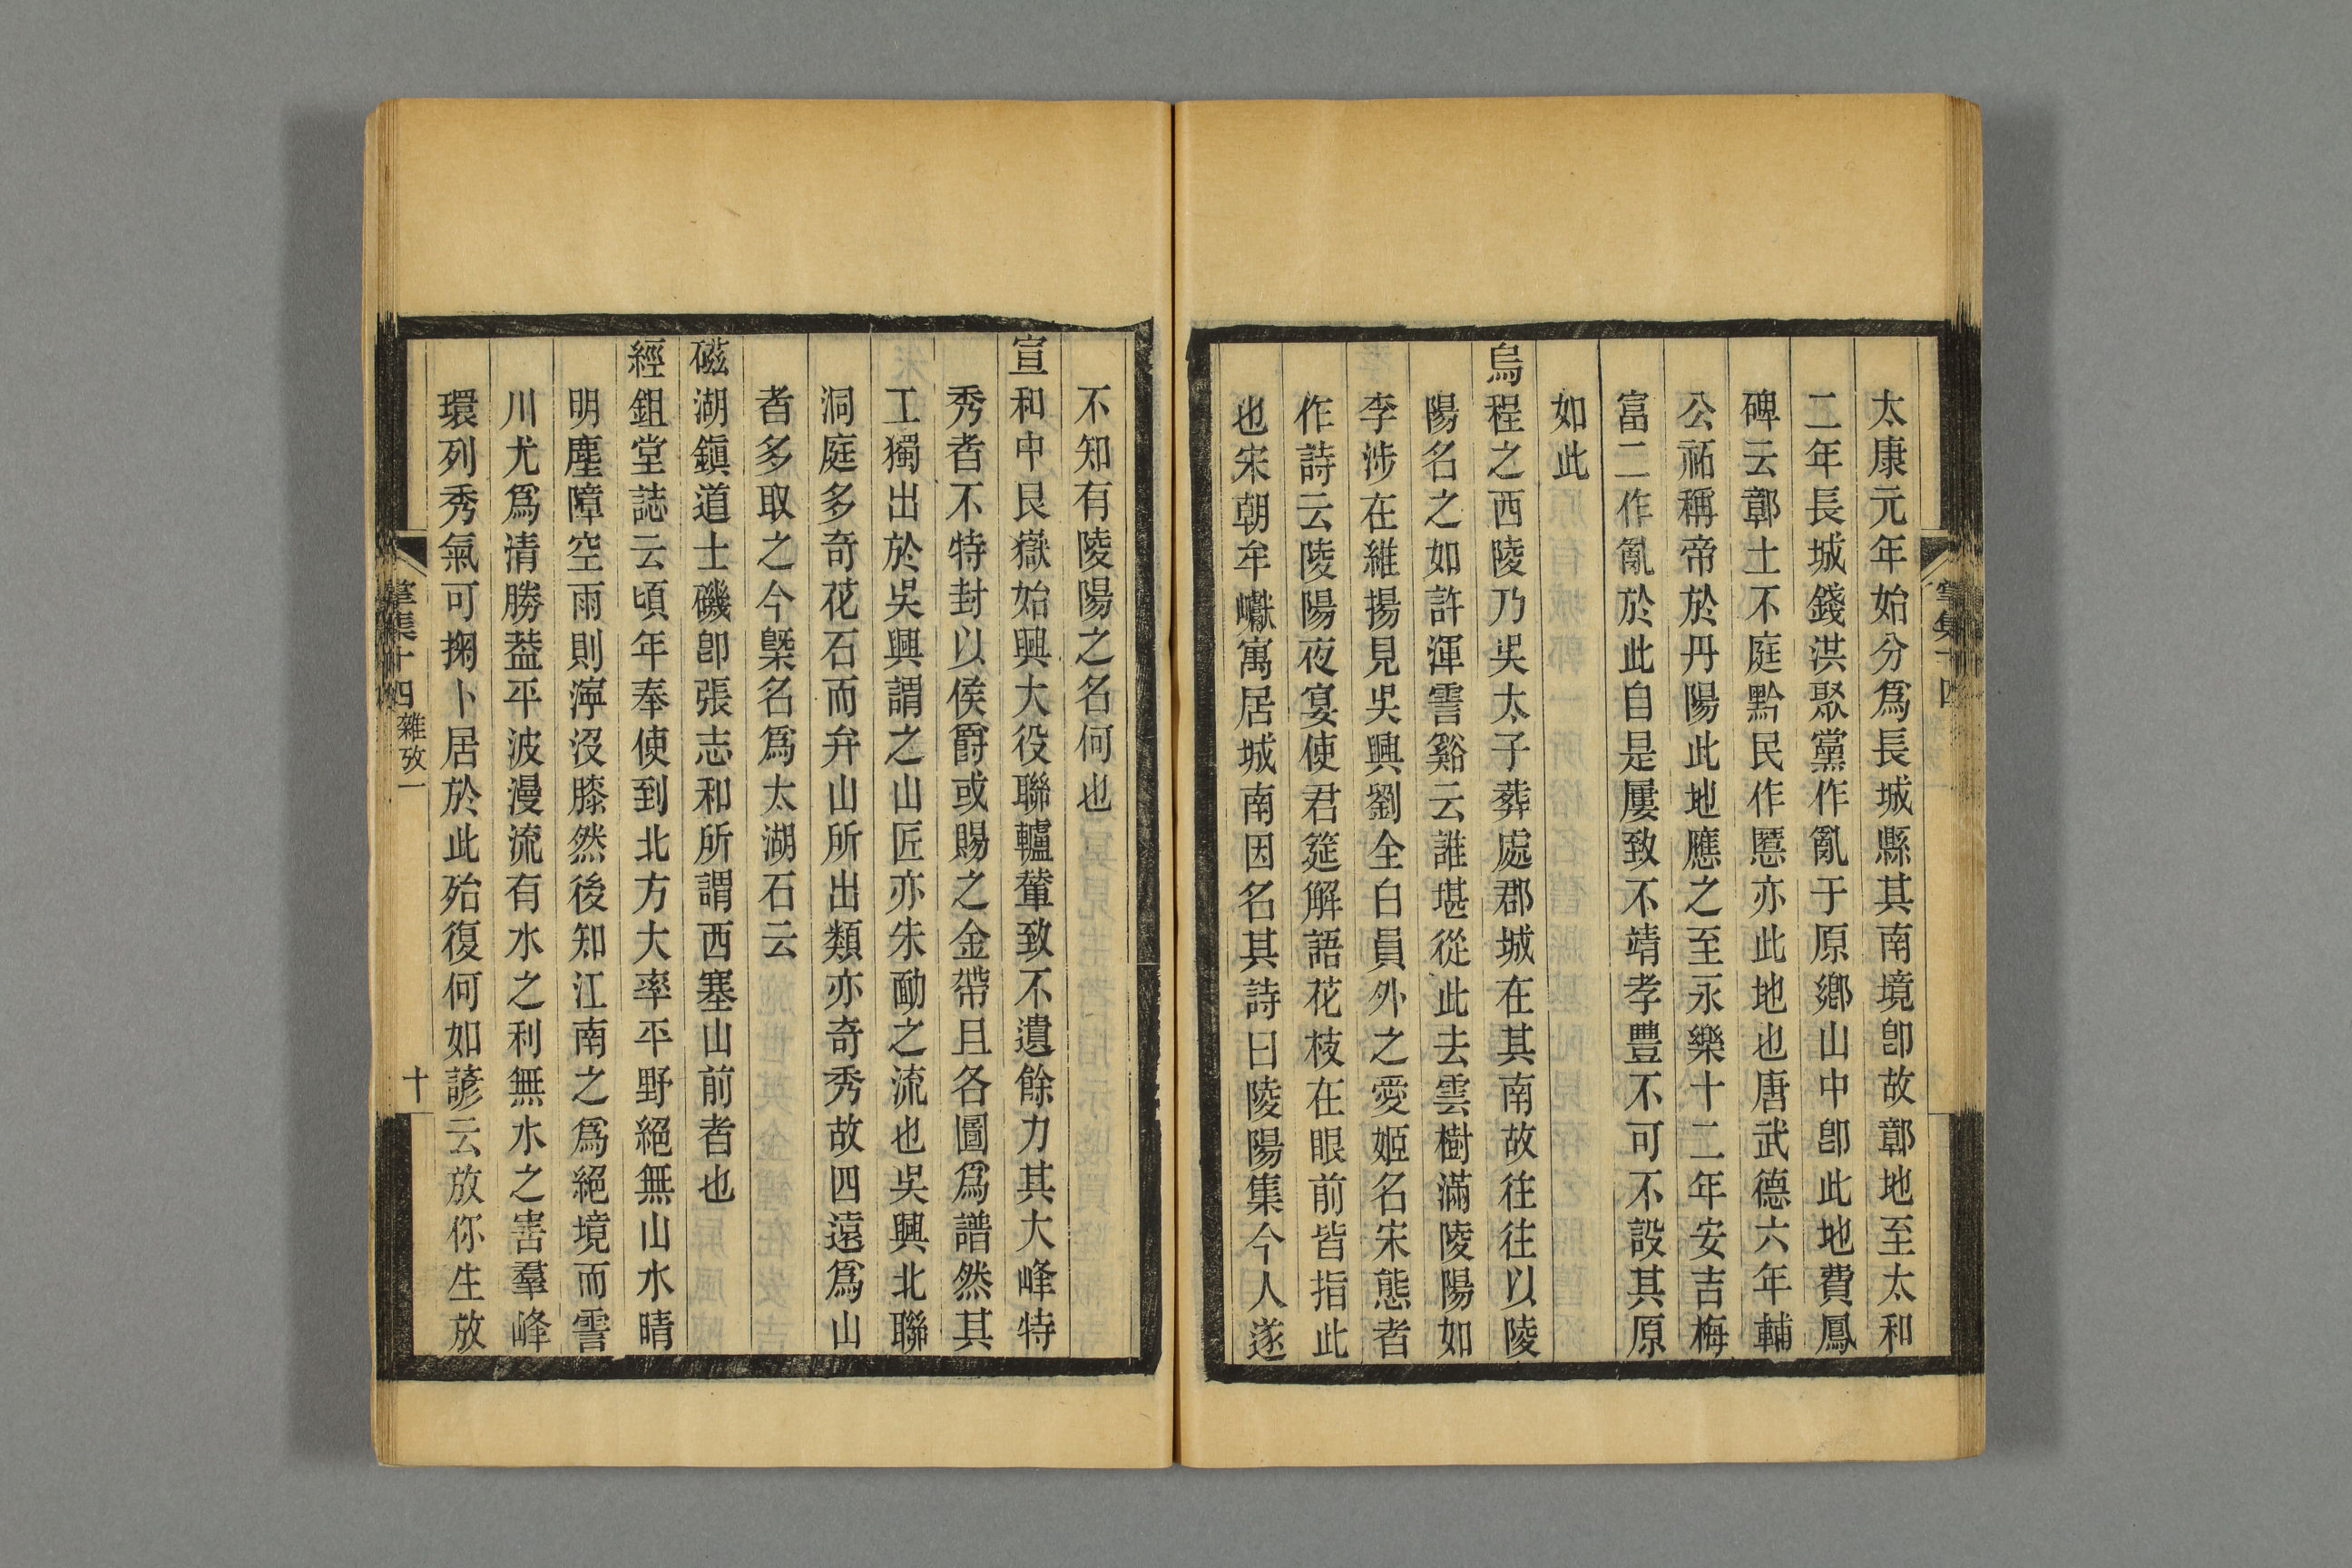 太康元年始分爲長城縣其南境卽故鄣地至太和
二年長城錢洪聚黨作亂于原鄉山中卽此地費鳳
碑云鄣土不庭黔民作慝亦此地也唐武德六年輔
公祏稱帝於丹陽此地應之至永樂十二年安吉梅
富二作亂於此自是屢致不靖孝豐不可不設其原
如此
烏程之西陵乃吳太子葬處郡城在其南故往往以陵
陽名之如許渾霅谿云誰堪從此去雲樹滿陵陽如
李涉在維揚見吳興劉全白員外之愛姬名宋態者
作詩云陵陽夜宴使君筵解語花枝在眼前皆指此
也宋朝牟巘寓居城南因名其詩曰陵陽集今人遂
不知有陵陽之名何也
宣和中艮嶽始興大役聯轤輦致不遺餘力其大峰特
秀者不特封以侯爵或賜之金帶且各圖爲譜然其
工獨出於吳興謂之山匠亦朱勔之流也吳興北聯
洞庭多奇花石而弁山所出類亦奇秀故四遠爲山
者多取之今槩名爲太湖石云
磁湖鎭道士磯卽張志和所謂西塞山前者也
經鉏堂誌云頃年奉使到北方大率平野絕無山水晴
明塵障空雨則濘沒膝然後知江南之爲絕境而霅
川尤爲清勝葢平波漫流有水之利無水之害羣峰
環列秀氣可掬卜居於此殆復何如諺云放你生放
集十四
雜攷一
十